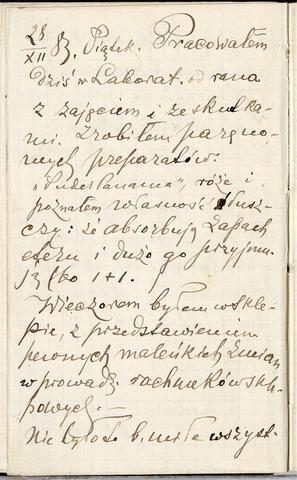 28/XII 83. Piątek. Pracowałem
dziś w Laborat. od rana
z zajęciem i ze skutka-
mi. Zrobiłem parę no-
wych preparatów:
róże i
poznałem własność tłusz-
czy: iż absorbują zapach
eteru i dużo go przyjmu-
ją (bo 1+1.
Wieczorem byłem w skle-
pie, z przedstawieniem
pewnych maleńkich zmian
w prowadz. rachunków skle-
powych. —
Nie było to b. miłe wszyst-